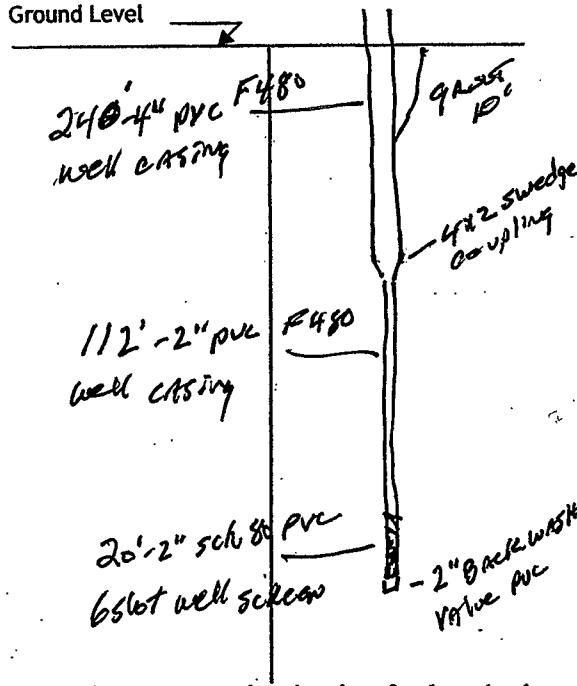 Ground Level
240'-4" PVC F480
well casing
grout
10'
4x2 swedge
coupling
112'-2" PVC F480
well casing
20'-2" sch 80 PVC
6 slot well screen
2" BACK WASH
Valve PVC